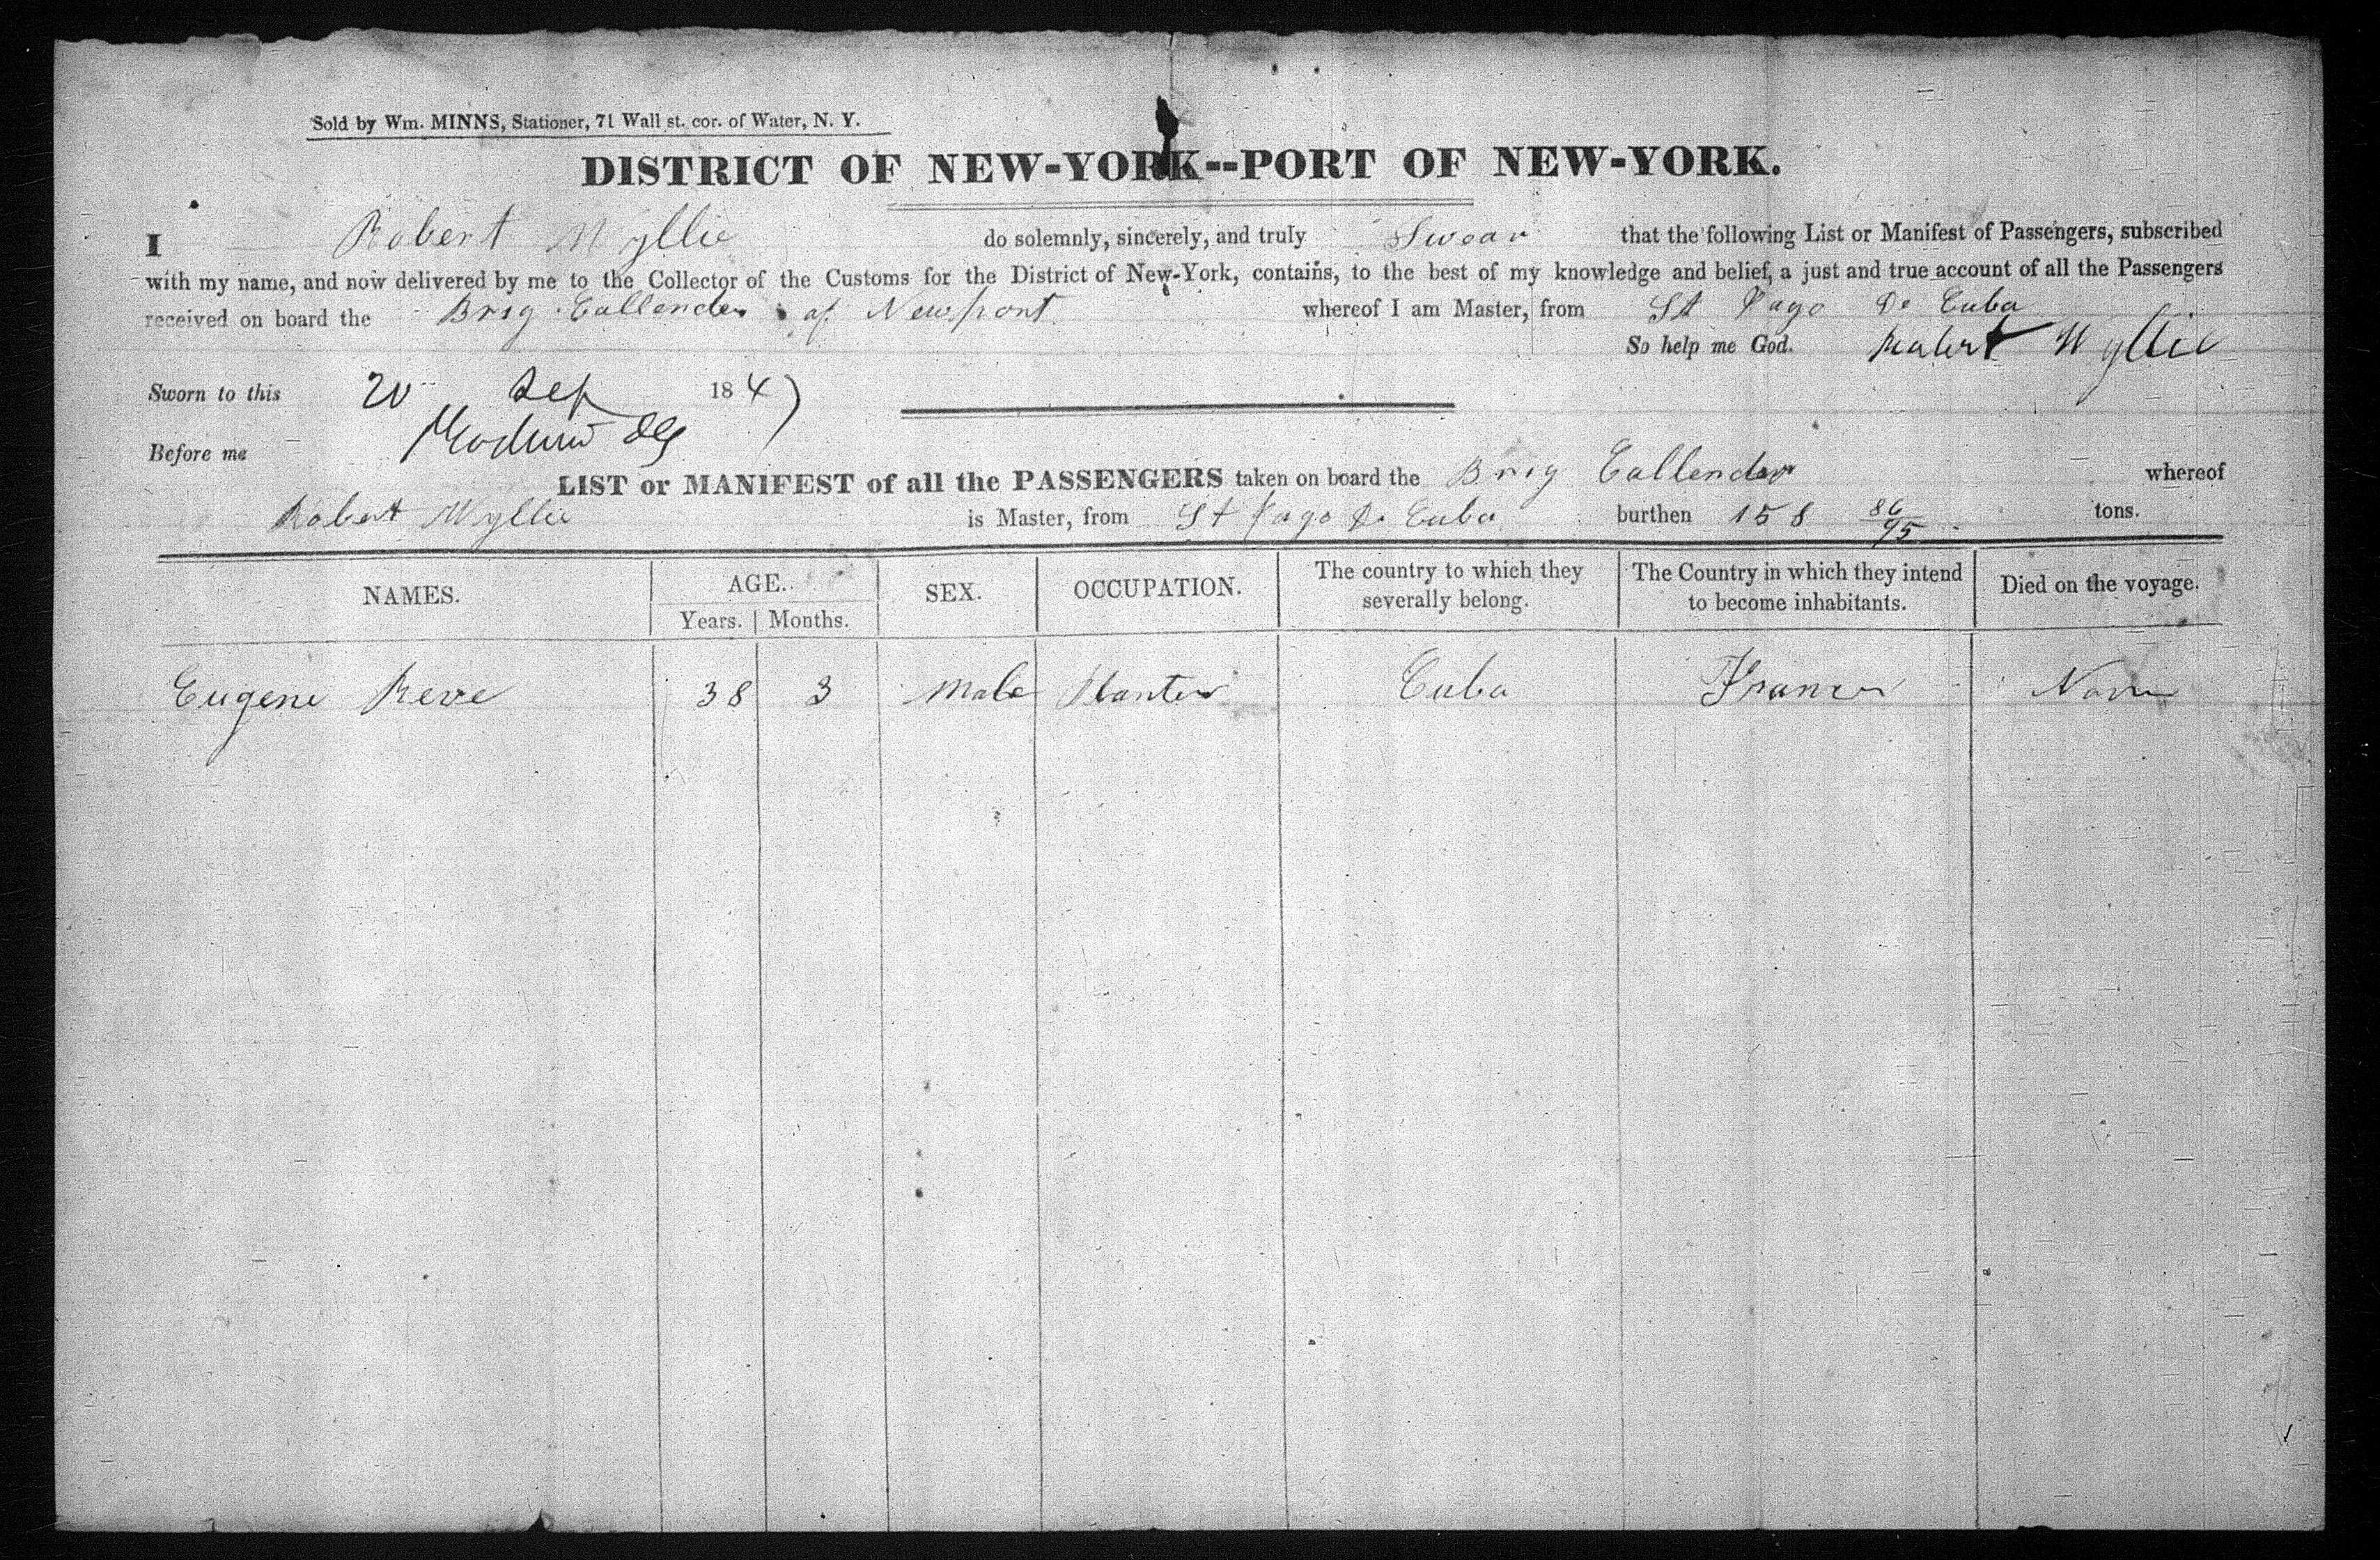 Sold by Wm. MINNS, Stationer, 71 Wall st. cor. of Water, N. Y.
DISTRICT OF NEW-YORK--PORT OF NEW-YORK.
I Robert Wyllie do solemnly, sincerely, and truly Swear that the following List or Manifest of Passengers, subscribed
with my name, and now delivered by me to the Collector of the Customs for the District of New-York, contains, to the best of my knowledge and belief, a just and true account of all the Passengers
received on board the Brig Callender of Newport whereof I am Master, from St Yago De Cuba
So help me God. Robert Wyllie
Sworn to this 20 Sep 1847
Before me
LIST or MANIFEST of all the PASSENGERS taken on board the Brig Callender whereof
Robert Wyllie is Master, from St Yago De Cuba burthen 158 86/95 tons.
NAMES. AGE. SEX. OCCUPATION. The country to which they severally belong. The Country in which they intend to become inhabitants. Died on the voyage.
Years. Months.
Eugene Reve 38 3 Male Planter Cuba France None